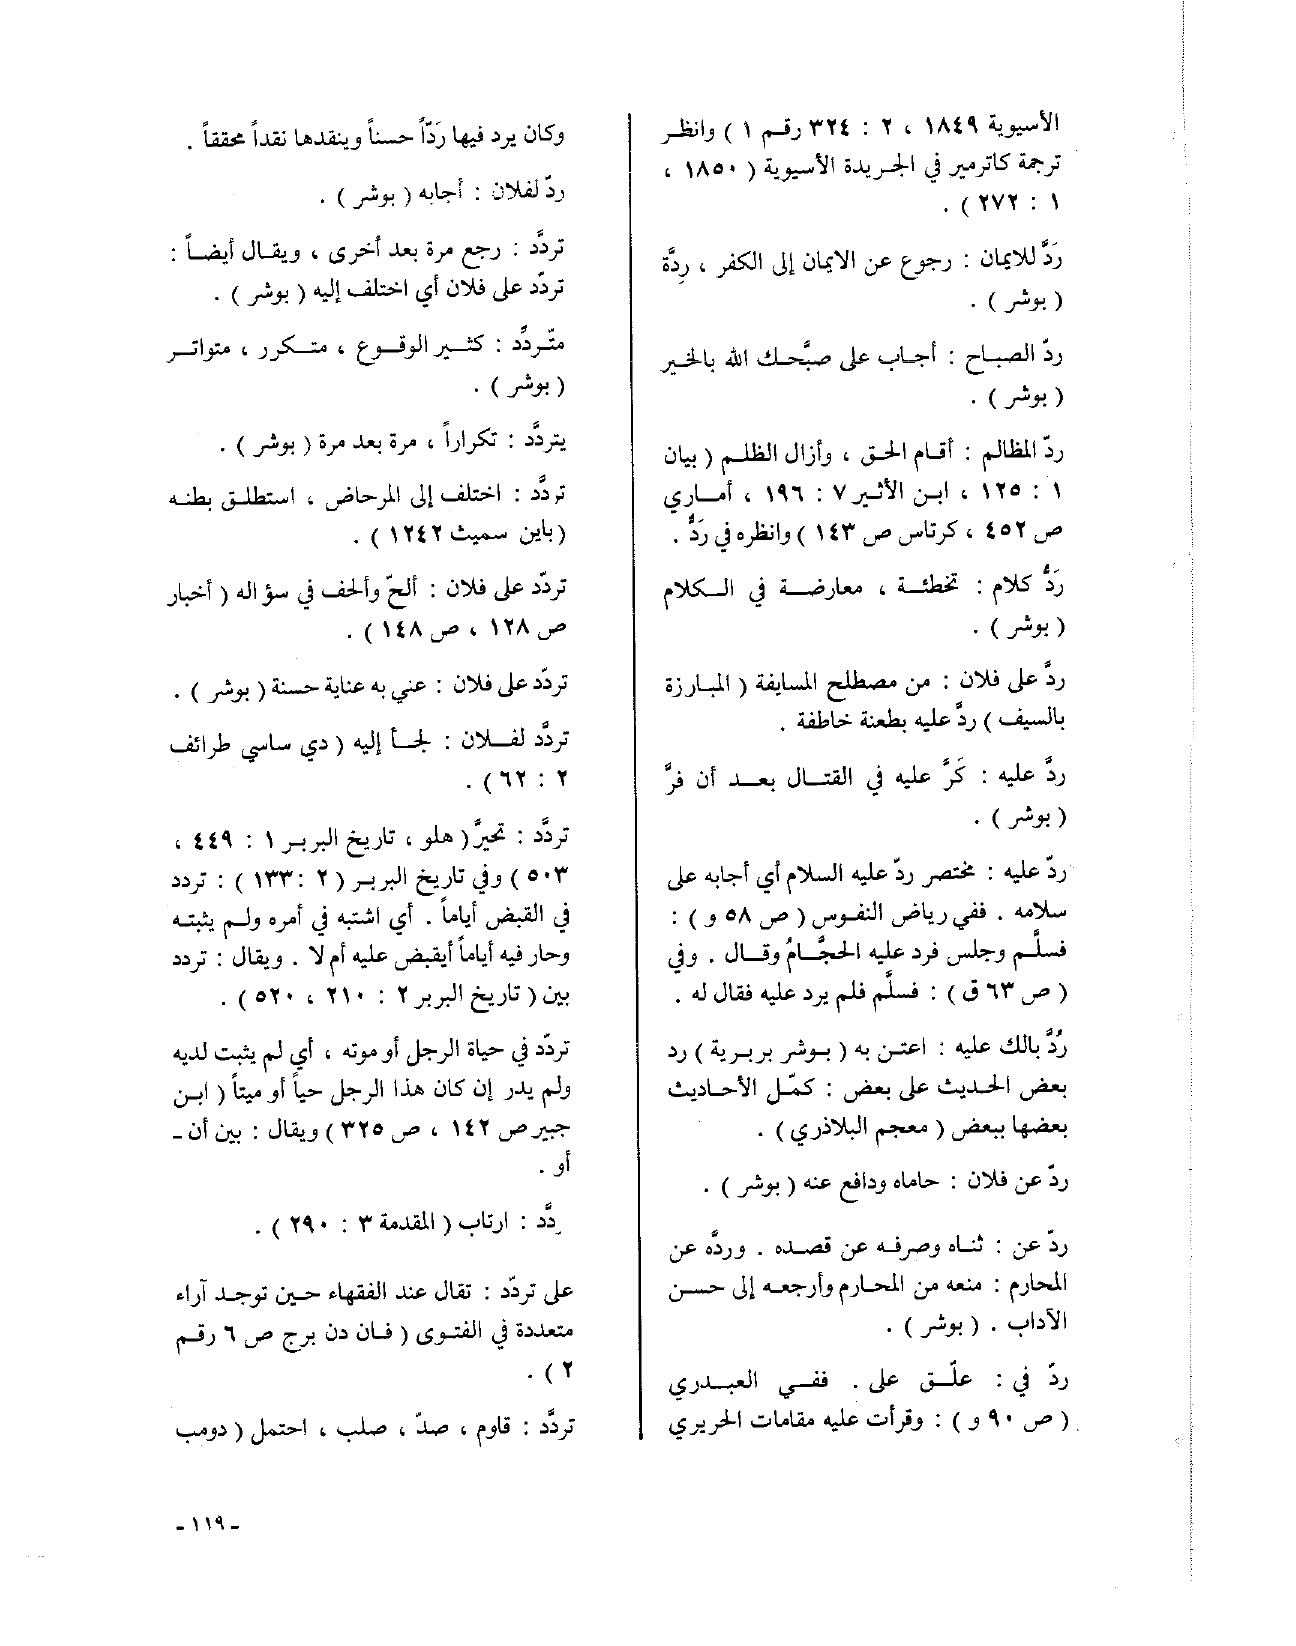 الأسيوية ١٨٤٩ ، ٢ : ٣٢٤ رقم ١ ) وانظر
ترجمة كاترمير في الجريدة الأسيوية ( ١٨٥٠ ،
١ : ٢٧٢ ) .
رَدَّ للايمان : رجوع عن الايمان إلى الكفر ، رِدَّة
( بوشر ) .
ردّ الصباح : أجاب على صبَّحك الله بالخير
( بوشر ) .
ردّ المظالم : أقام الحق ، وأزال الظلم ( بيان
١ : ١٢٥ ، ابن الأثير ٧ : ١٩٦ ، أماري
ص ٤٥٢ ، كرتاس ص ١٤٣ ) وانظره في رَدُّ .
رَدُّ كلام : تخطئة ، معارضة في الكلام
( بوشر ) .
ردَّ على فلان : من مصطلح المسايفة ( المبارزة
بالسيف ) ردَّ عليه بطعنة خاطفة .
ردَّ عليه : كَرَّ عليه في القتال بعد أن فرَّ
( بوشر ) .
ردّ عليه : مختصر ردّ عليه السلام أي أجابه على
سلامه . ففي رياض النفوس ( ص ٥٨ و ) :
فسلَّم وجلس فرد عليه الحجَّامُ وقال . وفي
( ص ٦٣ ق ) : فسلَّم فلم يرد عليه فقال له .
رُدَّ بالك عليه : اعتن به ( بوشر بربرية ) رد
بعض الحديث على بعض : كمّل الأحاديث
بعضها ببعض ( معجم البلاذري ) .
ردّ عن فلان : حاماه ودافع عنه ( بوشر ) .
ردّ عن : ثناه وصرفه عن قصده . وردَّه عن
المحارم : منعه من المحارم وأرجعه إلى حسن
الآداب . ( بوشر ) .
ردّ في : علّق على . ففي العبدري
( ص ٩٠ و ) : وقرأت عليه مقامات الحريري
وكان يرد فيها رَدّاً حسناً وينقدها نقداً محققاً .
ردّ لفلان : أجابه ( بوشر ) .
تردَّد : رجع مرة بعد أخرى ، ويقال أيضاً :
تردّد على فلان أي اختلف إليه ( بوشر ) .
متّردَّد : كثير الوقوع ، متكرر ، متواتر
( بوشر ) .
يتردَّد : تكراراً ، مرة بعد مرة ( بوشر ) .
تردَّد : اختلف إلى المرحاض ، استطلق بطنه
(باين سميث ١٢٤٢ ) .
تردّد على فلان : ألحّ وألحف في سؤاله ( أخبار
ص ١٢٨ ، ص ١٤٨ ) .
تردّد على فلان : عني به عناية حسنة ( بوشر ) .
تردَّد لفلان : لجأ إليه ( دي ساسي طرائف
٢ : ٦٢ ) .
تردَّد : تحيَّر ( هلو ، تاريخ البربر ١ : ٤٤٩ ،
٥٠٣ ) وفي تاريخ البربر ( ٢ : ١٣٣ ) : تردد
في القبض أياماً . أي اشتبه في أمره ولم يثبته
وحار فيه أياماً أيقبض عليه أم لا . ويقال : تردد
بين ( تاريخ البربر ٢ : ٢١٠ ، ٥٢٠ ) .
تردّد في حياة الرجل أو موته ، أي لم يثبت لديه
ولم يدر إن كان هذا الرجل حياً أو ميتاً ( ابن
جبير ص ١٤٢ ، ص ٣٢٥ ) ويقال : بين أن ـ
أو .
ردَّد : ارتاب ( المقدمة ٣ : ٢٩٠ ) .
على تردّد : تقال عند الفقهاء حين توجد آراء
متعددة في الفتوى ( فان دن برج ص ٦ رقم
٢ ) .
تردَّد : قاوم ، صدّ ، صلب ، احتمل ( دومب
- ١١٩ -